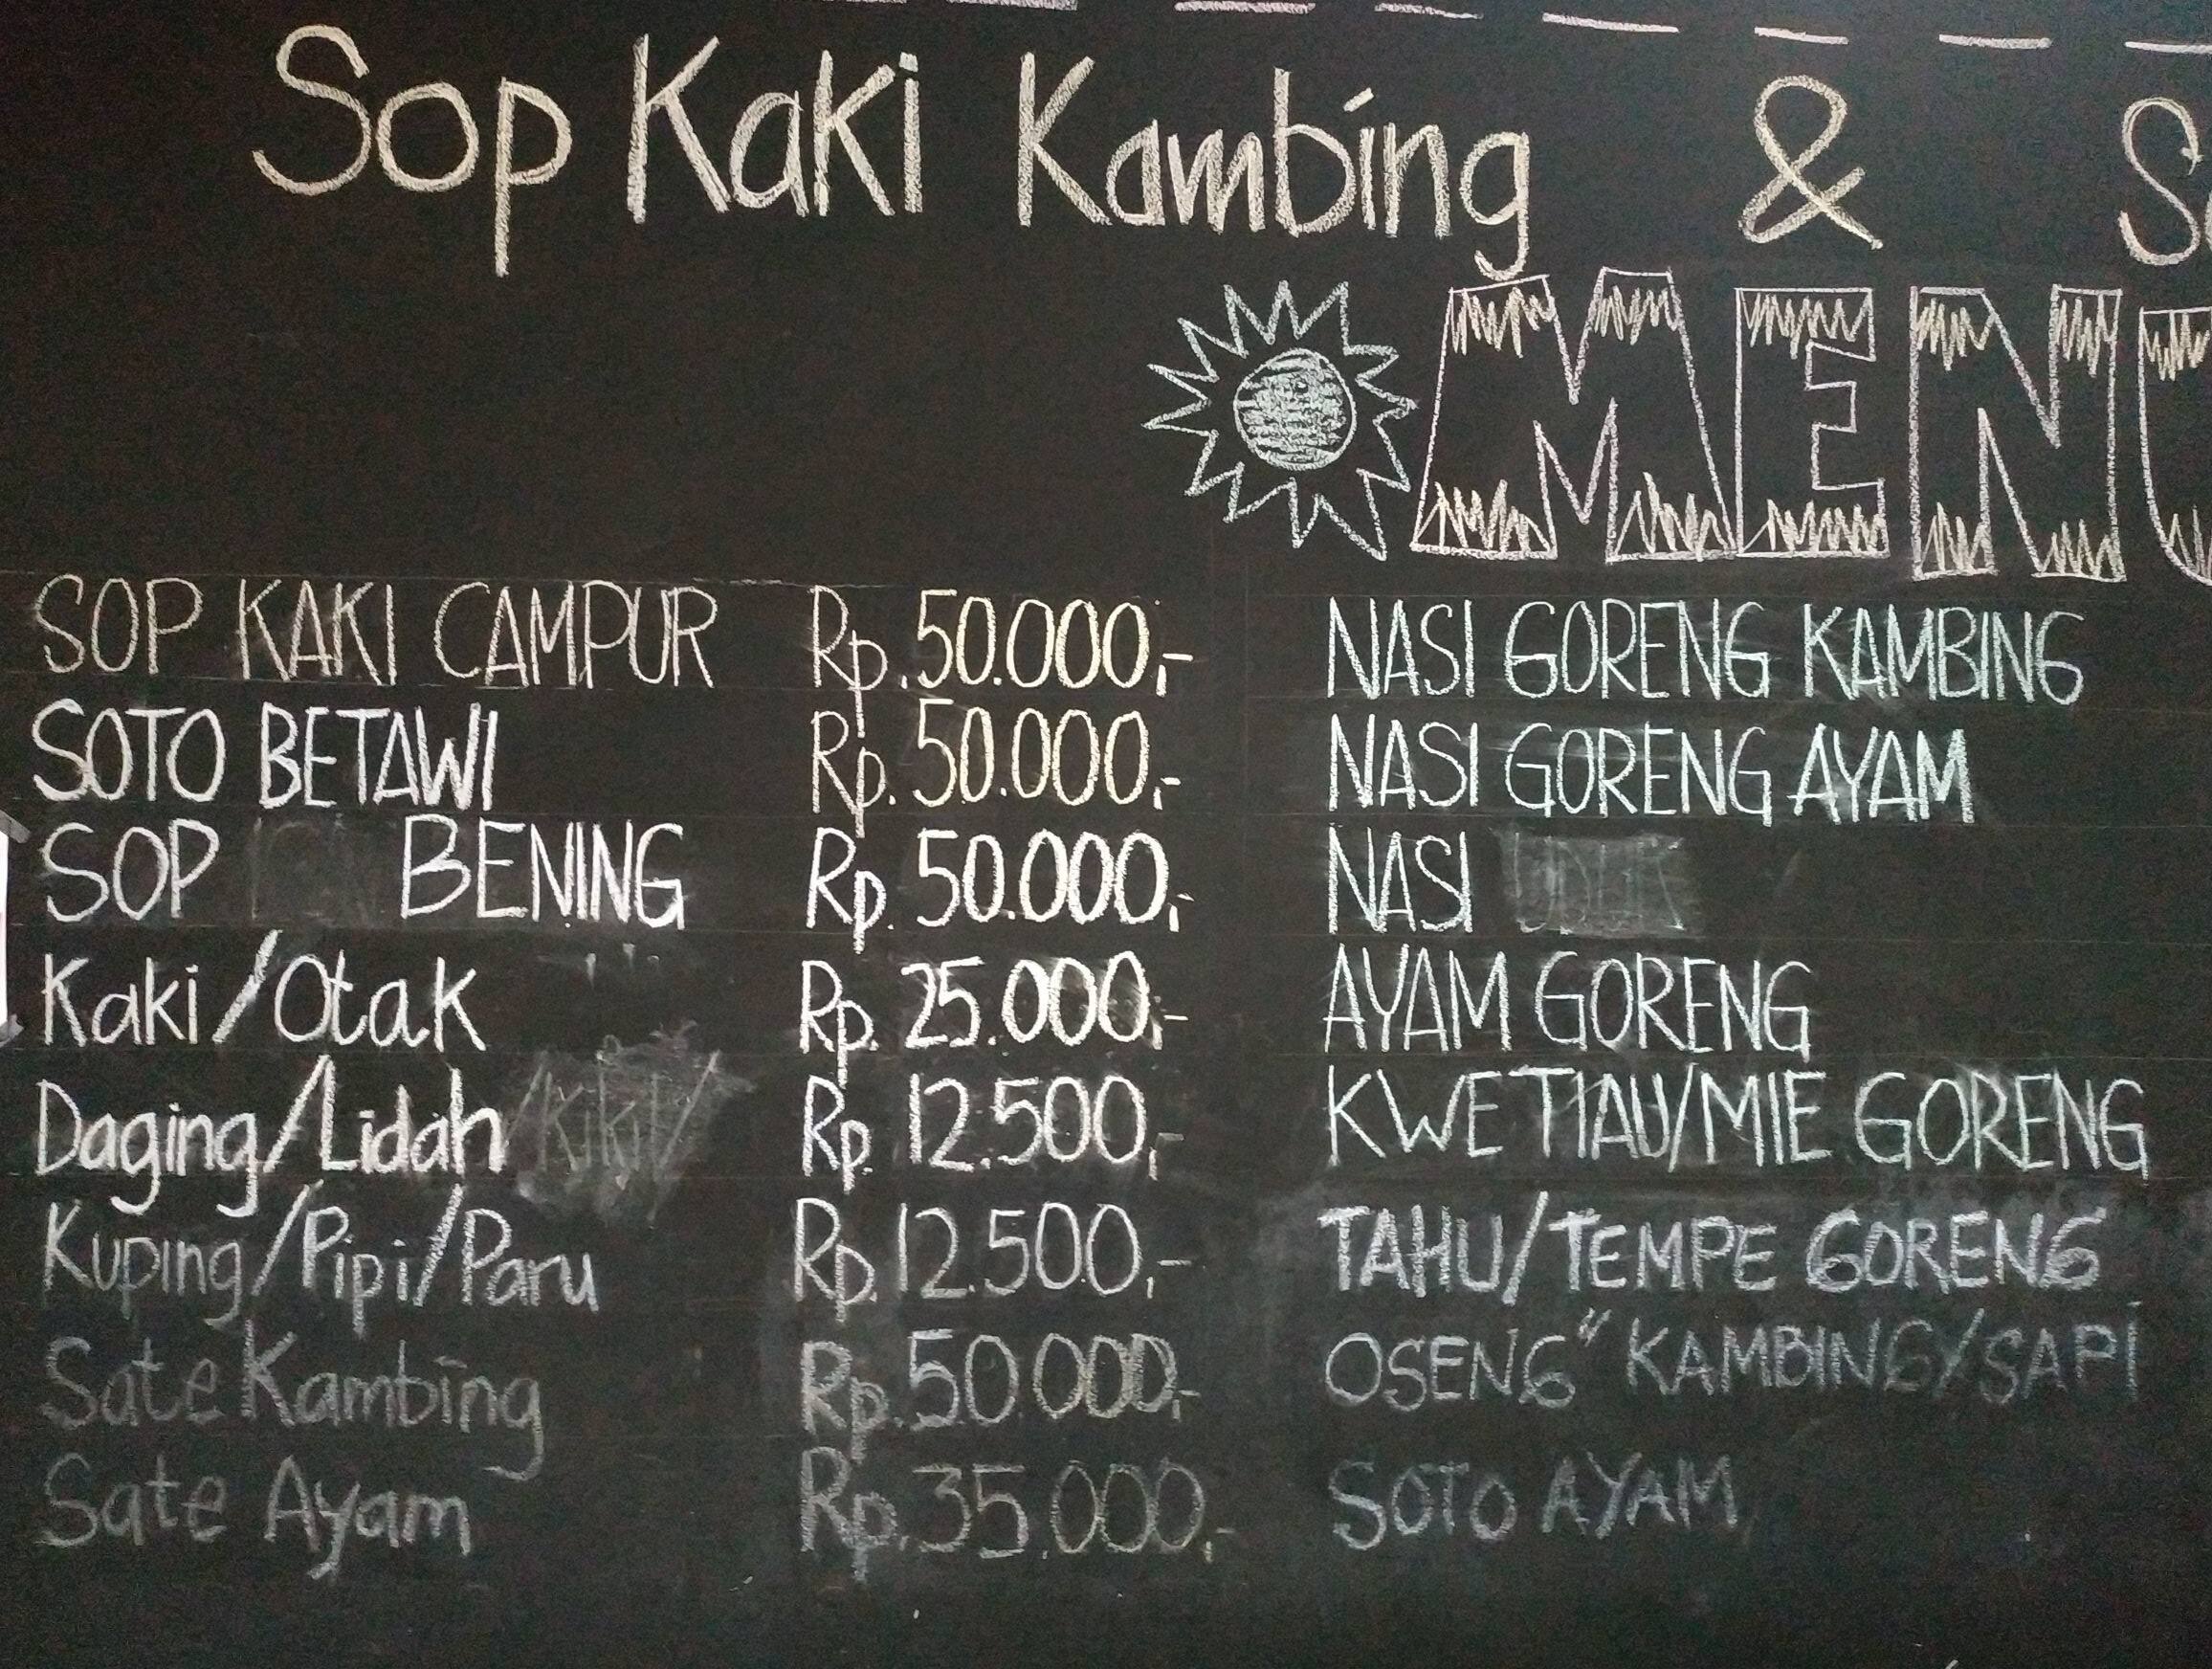 Sop Kaki Kambing &
MENU
SOP KAKI CAMPUR Rp. 50.000,-
SOTO BETAWI Rp. 50.000,-
SOP BENING Rp. 50.000,-
Kaki/Otak Rp. 25.000,-
Daging/Lidah/Kikil/ Rp. 12.500,-
Kuping/Pipi/Paru Rp. 12.500,-
Sate Kambing Rp. 50.000,-
Sate Ayam Rp. 35.000,-
NASI GORENG KAMBING
NASI GORENG AYAM
NASI
AYAM GORENG
KWETIAU/MIE GORENG
TAHU/TEMPE GORENG
OSENG" KAMBING/SAPI
SOTO AYAM